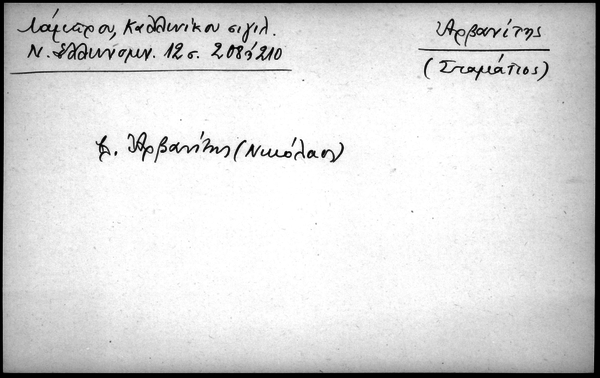 Λάμπρου, Καλλινίκου σιγιλ.
Ν. Ἑλληνομν. 12 σ. 208 210
Ἀρβανίτης
(Σταμάτιος)
Ἀρβανίτης (Νικόλαος)